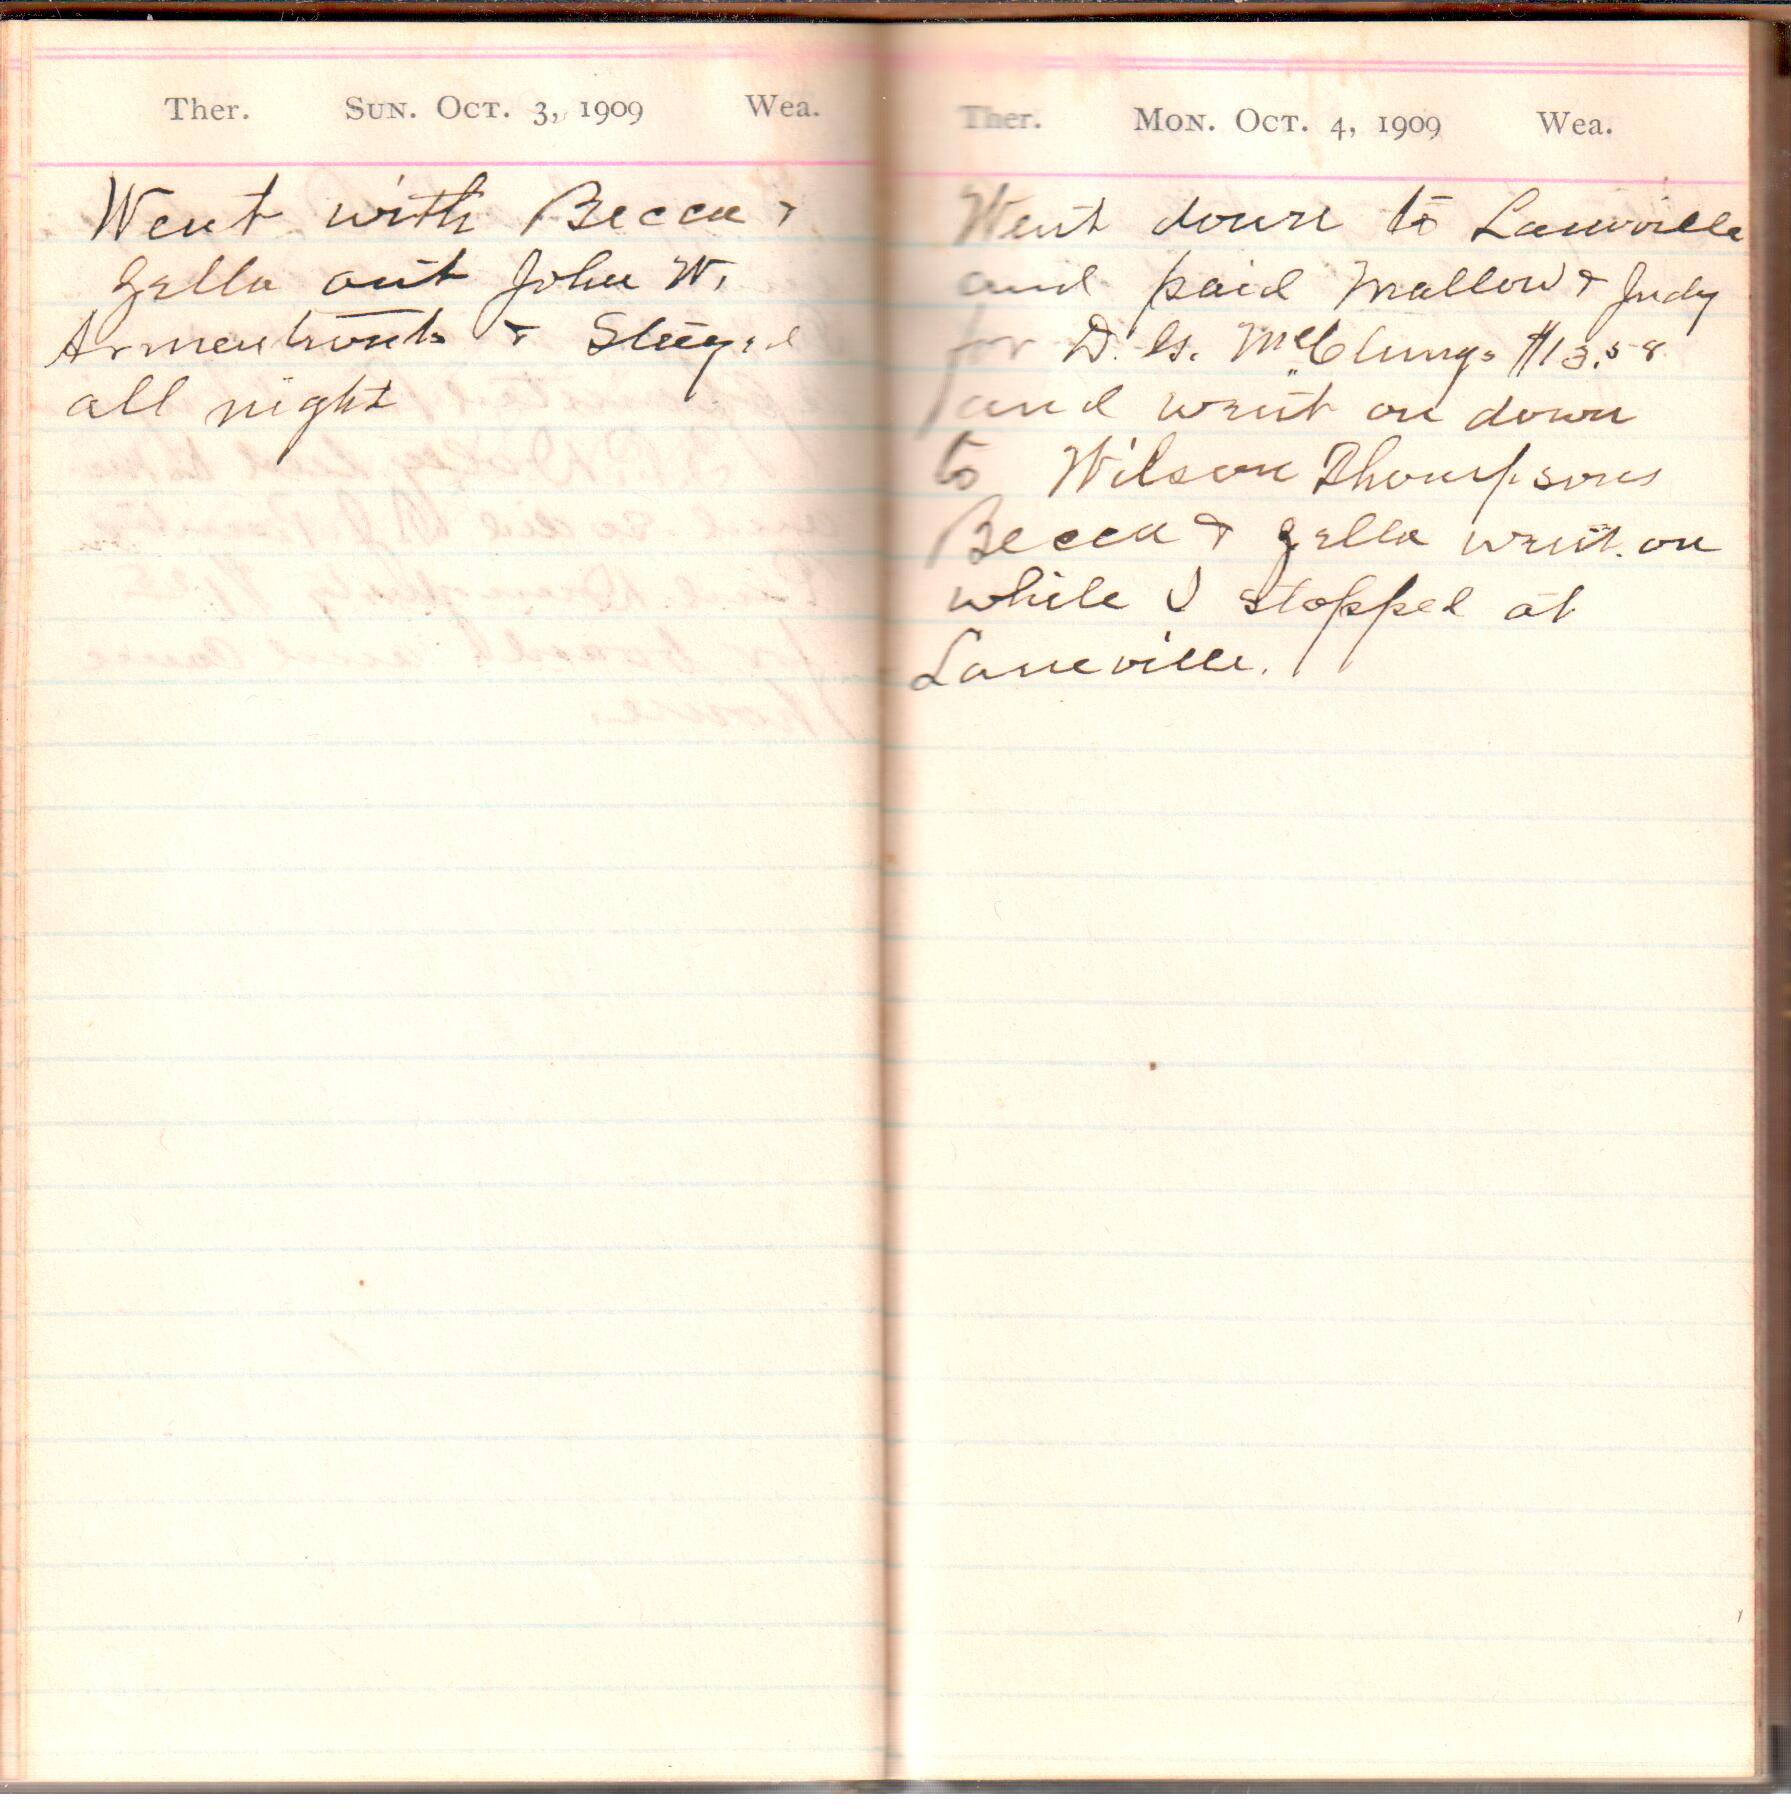 Ther. Sun. Oct. 3, 1909 Wea.
Went with Becca &
Zella out John W.
Armentrouts & Stayed
all night
Ther. Mon. Oct. 4, 1909 Wea.
Went down to Laneville
and paid Mallow & Judy
for D. G. McClung. $13.58
and went on down
to Wilson Thompsons
Becca & Zella went on
while I stopped at
Laneville.